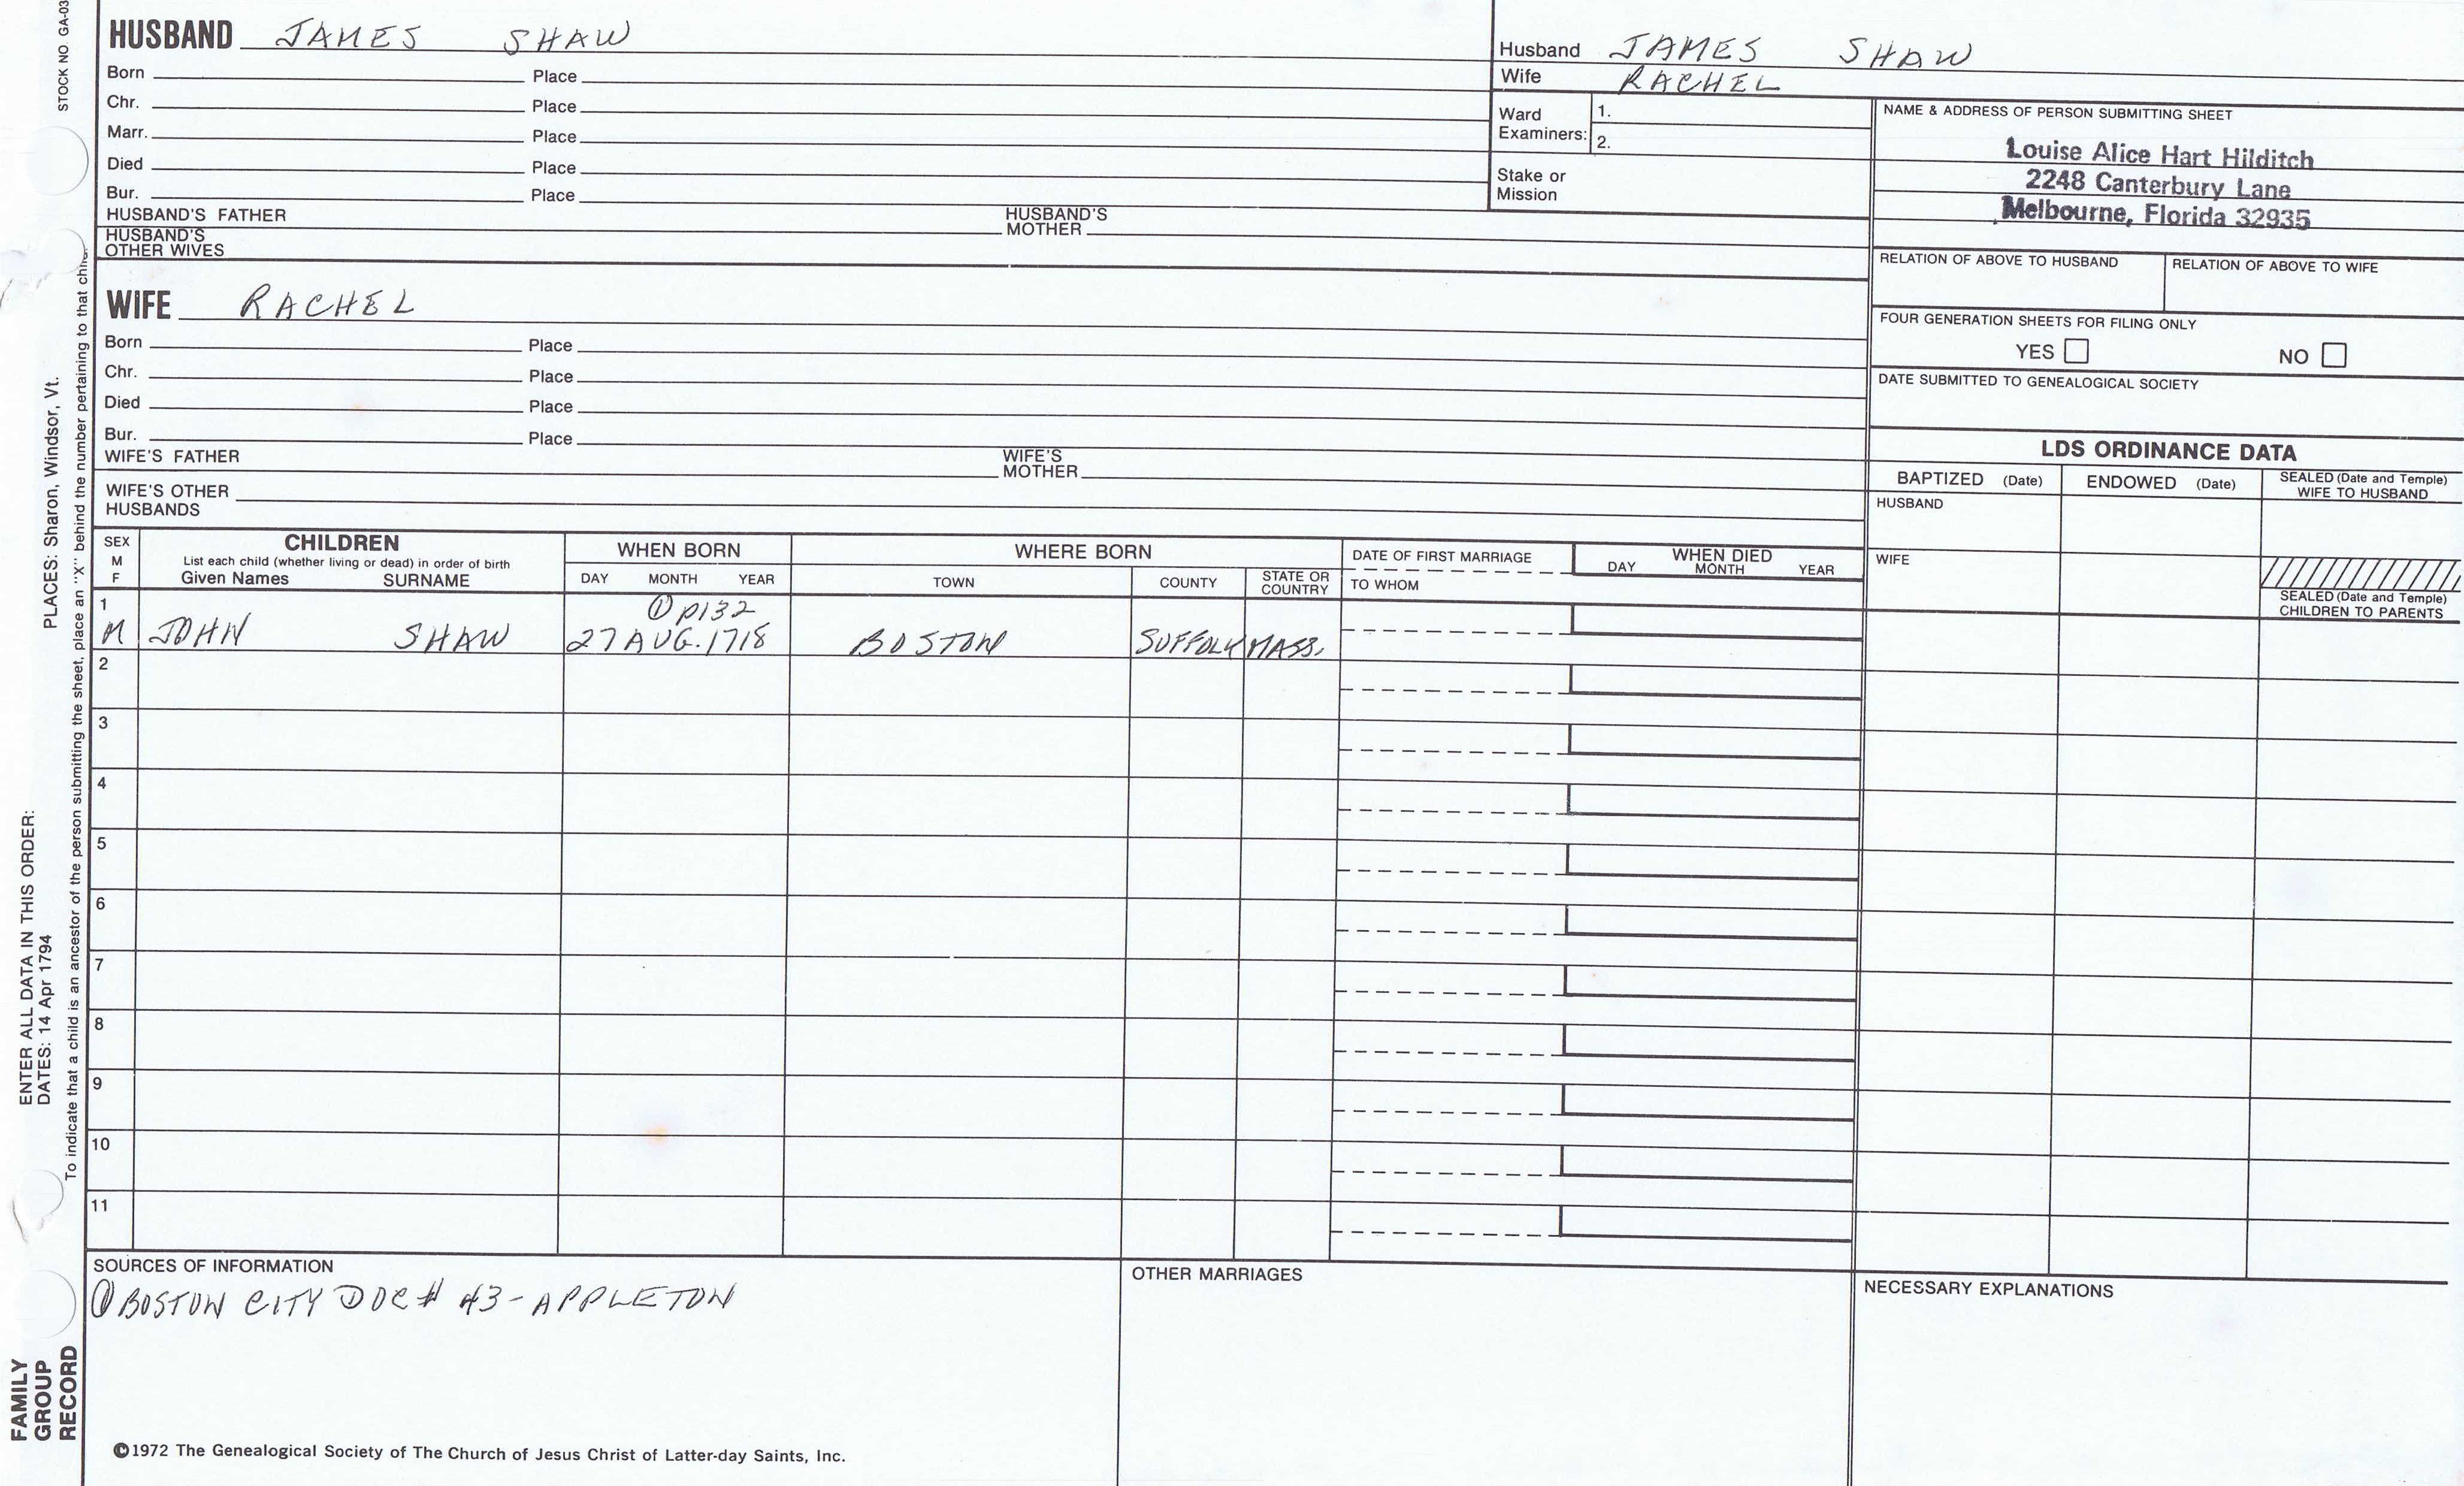 STOCK NO. GA-03
HUSBAND JAMES SHAW
Born Place
Chr. Place
Marr. Place
Died Place
Bur. Place
HUSBAND'S FATHER HUSBAND'S MOTHER
HUSBAND'S OTHER WIVES
WIFE RACHEL
Born Place
Chr. Place
Died Place
Bur. Place
WIFE'S FATHER WIFE'S MOTHER
WIFE'S OTHER HUSBANDS
Husband JAMES SHAW
Wife RACHEL
Ward Examiners: 1.
2.
Stake or Mission
NAME & ADDRESS OF PERSON SUBMITTING SHEET
Louise Alice Hart Hilditch
2248 Canterbury Lane
Melbourne, Florida 32935
RELATION OF ABOVE TO HUSBAND RELATION OF ABOVE TO WIFE
FOUR GENERATION SHEETS FOR FILING ONLY
YES NO
DATE SUBMITTED TO GENEALOGICAL SOCIETY
LDS ORDINANCE DATA
BAPTIZED (Date) ENDOWED (Date) SEALED (Date and Temple) WIFE TO HUSBAND
HUSBAND
WIFE
SEALED (Date and Temple) CHILDREN TO PARENTS
SEX M F
CHILDREN
List each child (whether living or dead) in order of birth
Given Names SURNAME
WHEN BORN
DAY MONTH YEAR
WHERE BORN
TOWN COUNTY STATE OR COUNTRY
DATE OF FIRST MARRIAGE
TO WHOM
WHEN DIED
DAY MONTH YEAR
1 ① p132
M JOHN SHAW 27 AUG. 1718 BOSTON SUFFOLK MASS.
2
3
4
5
6
7
8
9
10
11
SOURCES OF INFORMATION
① BOSTON CITY DOC # 43 - APPLETON
OTHER MARRIAGES
NECESSARY EXPLANATIONS
©1972 The Genealogical Society of The Church of Jesus Christ of Latter-day Saints, Inc.
ENTER ALL DATA IN THIS ORDER:
DATES: 14 Apr 1794 PLACES: Sharon, Windsor, Vt.
To indicate that a child is an ancestor of the person submitting the sheet, place an "X" behind the number pertaining to that
FAMILY
GROUP
RECORD